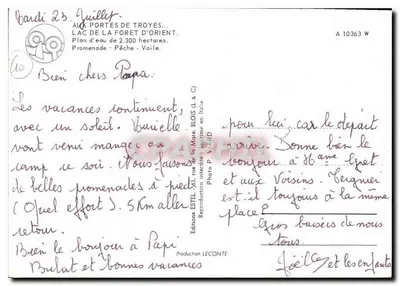 Mardi 23 Juillet.
AUX PORTES DE TROYES...
LAC DE LA FORET D'ORIENT.
Plan d'eau de 2.300 hectares.
Promenade - Pêche - Voile.
A 10363 W
Bien chers Papa.
Les vacances continuent,
avec un soleil.
vont venir manger au
camp ce soir. Nous faisons
de belles promenades à pied
(Quel effort). 5 Km aller
retour.
Bien le bonjour à Papi
et bonnes vacances
Editions ESTEL, rue de la Mare, BLOIS (L. & C)
Reproduction interdite. Imprimé en Italie
Photo P.
pour lui, car le départ
arrive. Donne bien le
bonjour à Mme
et aux Voisins.
est-il toujours à la même
place?
Gros baisers de nous
tous.
Joëlle et les enfants
Production LECONTE